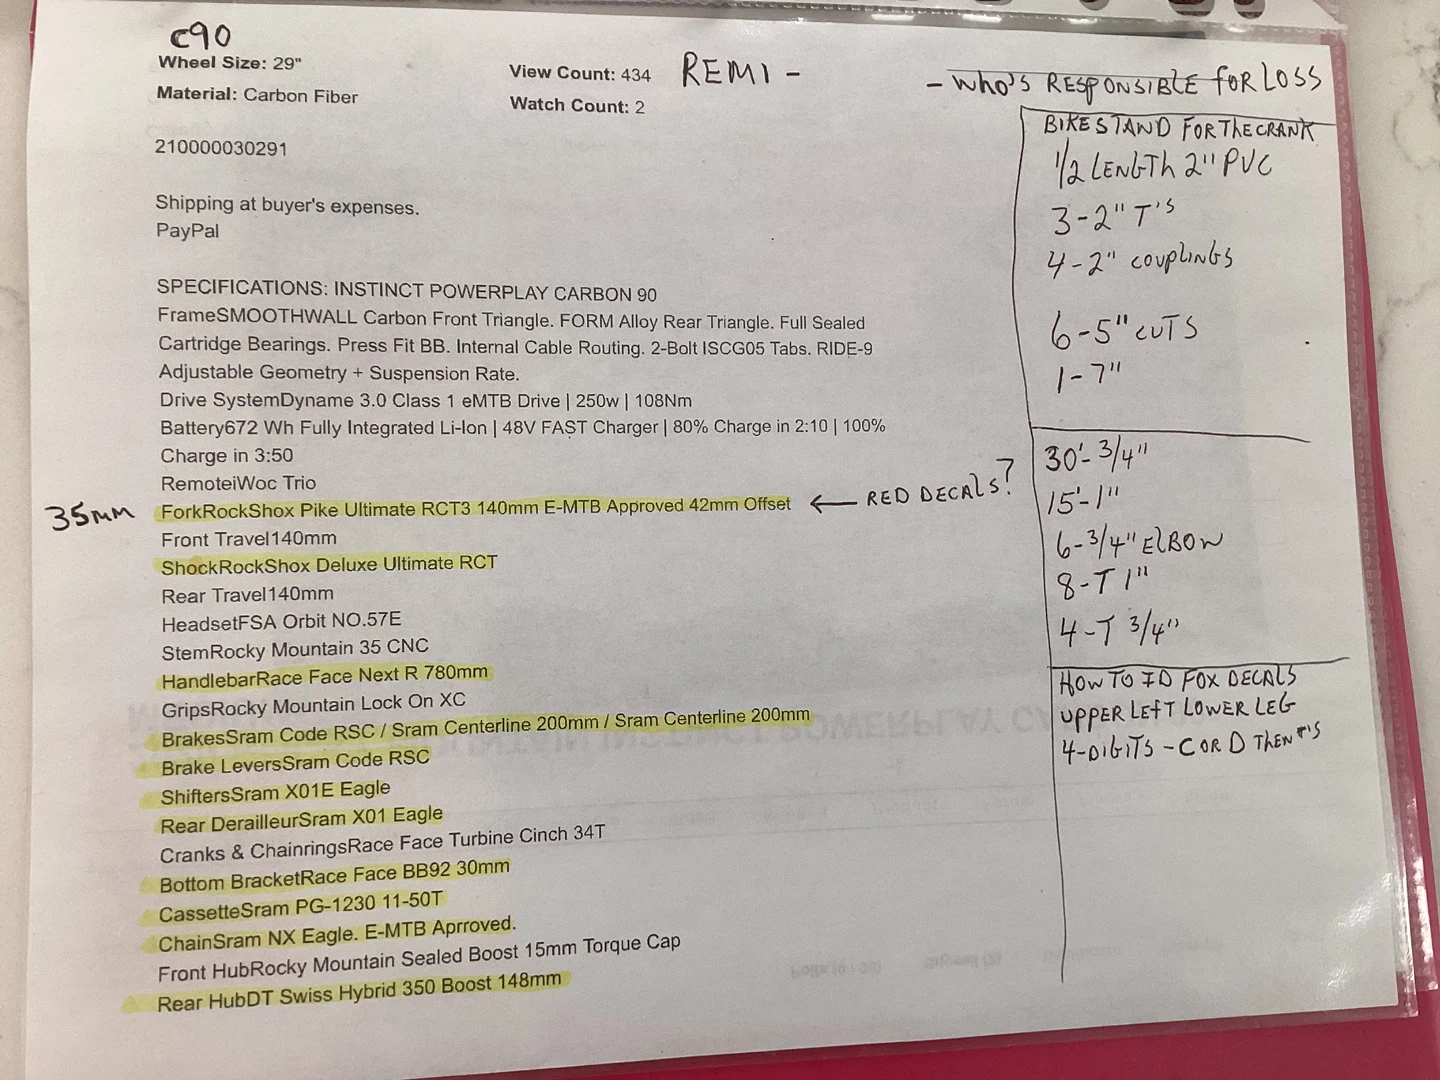 C90
Wheel Size: 29"
Material: Carbon Fiber
View Count: 434
Watch Count: 2
REMI -
- WHO'S RESPONSIBLE FOR LOSS
210000030291
Shipping at buyer's expenses.
PayPal
SPECIFICATIONS: INSTINCT POWERPLAY CARBON 90
FrameSMOOTHWALL Carbon Front Triangle. FORM Alloy Rear Triangle. Full Sealed
Cartridge Bearings. Press Fit BB. Internal Cable Routing. 2-Bolt ISCG05 Tabs. RIDE-9
Adjustable Geometry + Suspension Rate.
Drive SystemDyname 3.0 Class 1 eMTB Drive | 250w | 108Nm
Battery672 Wh Fully Integrated Li-Ion | 48V FAST Charger | 80% Charge in 2:10 | 100%
Charge in 3:50
RemoteiWoc Trio
35MM
ForkRockShox Pike Ultimate RCT3 140mm E-MTB Approved 42mm Offset
← RED DECALS?
Front Travel140mm
ShockRockShox Deluxe Ultimate RCT
Rear Travel140mm
HeadsetFSA Orbit NO.57E
StemRocky Mountain 35 CNC
HandlebarRace Face Next R 780mm
GripsRocky Mountain Lock On XC
BrakesSram Code RSC / Sram Centerline 200mm / Sram Centerline 200mm
Brake LeversSram Code RSC
ShiftersSram X01E Eagle
Rear DerailleurSram X01 Eagle
Cranks & ChainringsRace Face Turbine Cinch 34T
Bottom BracketRace Face BB92 30mm
CassetteSram PG-1230 11-50T
ChainSram NX Eagle. E-MTB Aprroved.
Front HubRocky Mountain Sealed Boost 15mm Torque Cap
Rear HubDT Swiss Hybrid 350 Boost 148mm
BIKE STAND FOR THE CRANK
1/2 LENGTH 2" PVC
3-2" T'S
4-2" COUPLINGS
6-5" CUTS
1-7"
30'-3/4"
15'-1"
6-3/4" ELBOW
8-T 1"
4-T 3/4"
HOW TO ID FOX DECALS
UPPER LEFT LOWER LEG
4-DIGITS - C OR D THEN #'S